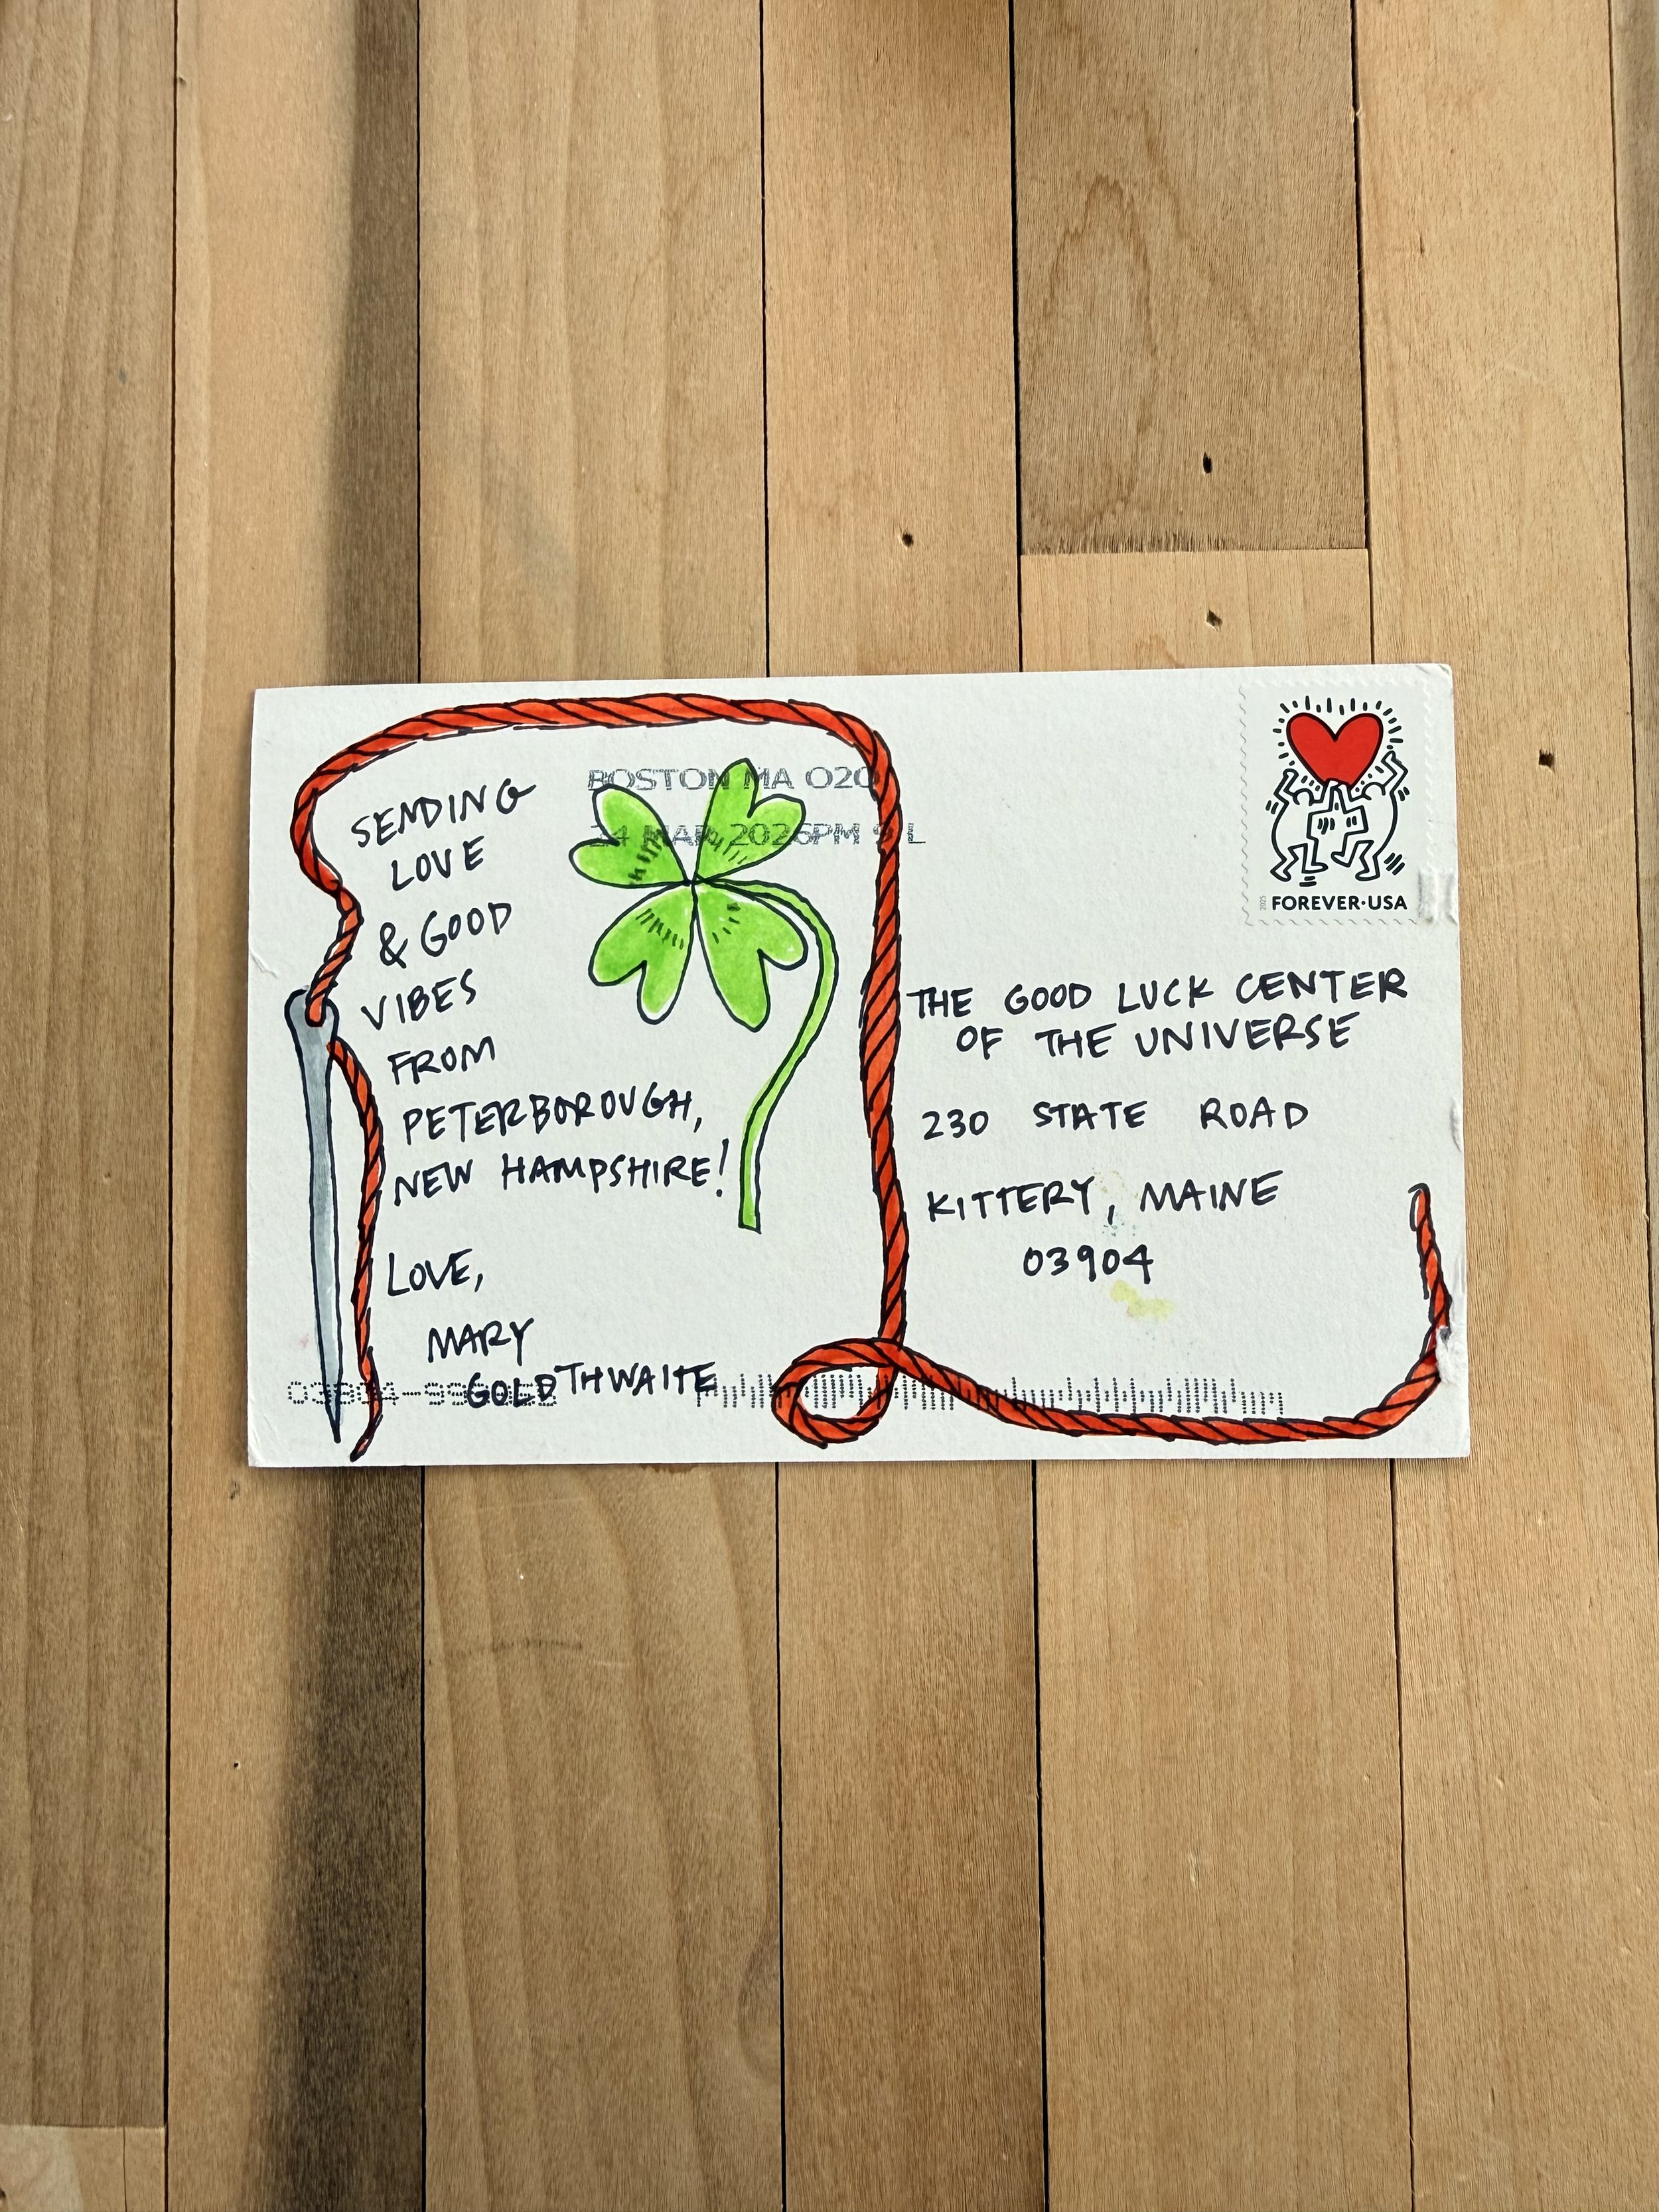 SENDING
LOVE
& GOOD
VIBES
FROM
PETERBOROUGH,
NEW HAMPSHIRE!
LOVE,
MARY
GOLDTHWAITE
BOSTON MA 020
24 MAR 2026PM L
FOREVER·USA
THE GOOD LUCK CENTER
OF THE UNIVERSE
230 STATE ROAD
KITTERY, MAINE
03904